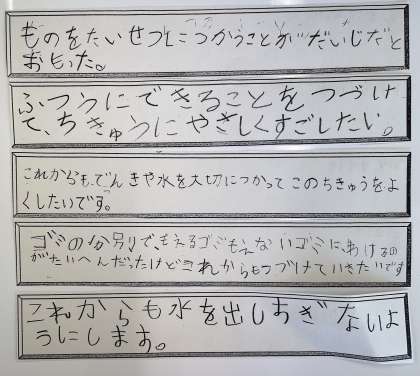 ものをたいせつにつかうことがだいじだと
おもった。
ふつうにできることをつづけ
て、ちきゅうにやさしくすごしたい。
これからも、でんきや水を大切につかって このちきゅうをよ
くしたいです。
ゴミの分別で、もえるゴミもえないゴミに、わけるの
がたいへんだったけどこれからもつづけていきたいです
これからも水を出しすぎないよ
うにします。